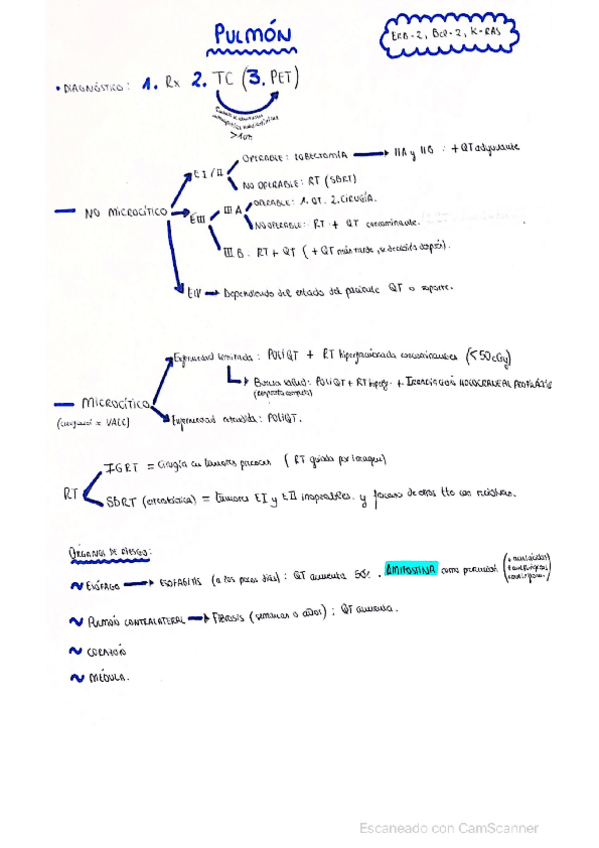 PULMÓN
ErB-2, Bcl-2, K-RAS
• DIAGNÓSTICO: 1. Rx 2. TC (3. PET)
>1cm
— NO MICROCÍTICO
E I / II
OPERABLE: LOBECTOMÍA → IIA y IIB : + QT adyuvante
NO OPERABLE: RT (SBRT)
EIII
III A
OPERABLE: 1. QT. 2. CIRUGÍA.
NO OPERABLE: RT + QT concomitante.
III B: RT + QT (+ QT más tarde, se decide después).
EIV → Dependiendo del estado del paciente QT o soporte.
— MICROCÍTICO
Enfermedad limitada: POLIQT + RT hiperfraccionada concomitantes (<50cGy)
Buena salud: POLIQT + RT hipofr. + IRRADIACIÓN HOLOCRANEAL PROFILÁCTICA
(respuesta completa)
(estadificación = VALC)
Enfermedad extendida: POLIQT.
RT
IGRT = Cirugía en tumores precoces (RT guiada por imagen)
SBRT (estereotáxica) = tumores EI y EII inoperables. y fracaso de otros tto con recidivas.
ÓRGANOS DE RIESGO:
~ ESÓFAGO → ESOFAGITIS (a los pocos días): QT aumenta 50%. AMIFOSTINA como protector
~ PULMÓN CONTRALATERAL → FIBROSIS (semanas o años): QT aumenta.
~ CORAZÓN
~ MÉDULA.
Escaneado con CamScanner